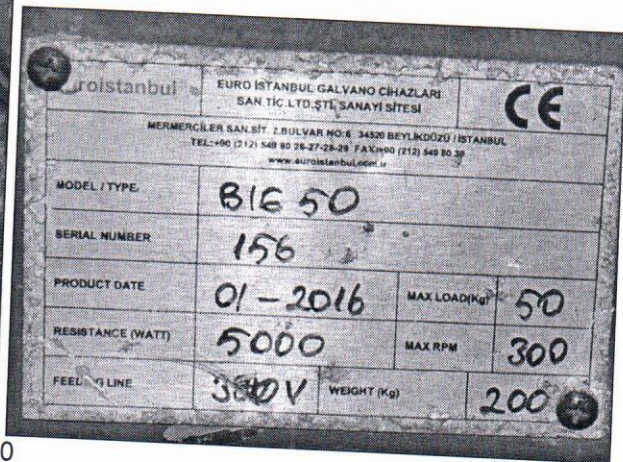 EURO İSTANBUL GALVANO CİHAZLARI
SAN.TİC.LTD.ŞTİ. SANAYİ SİTESİ
CE
MERMERCİLER SAN.SİT. 2.BULVAR NO:6 34520 BEYLİKDÜZÜ / İSTANBUL
TEL:+90 (212) 549 80 26-27-28-29 FAX:+90 (212) 549 80 30
www.euroistanbul.com.tr
MODEL / TYPE BIG 50
SERIAL NUMBER 156
PRODUCT DATE 01-2016 MAX LOAD(Kg) 50
RESISTANCE (WATT) 5000 MAX RPM 300
LINE WEIGHT (Kg) 200
0